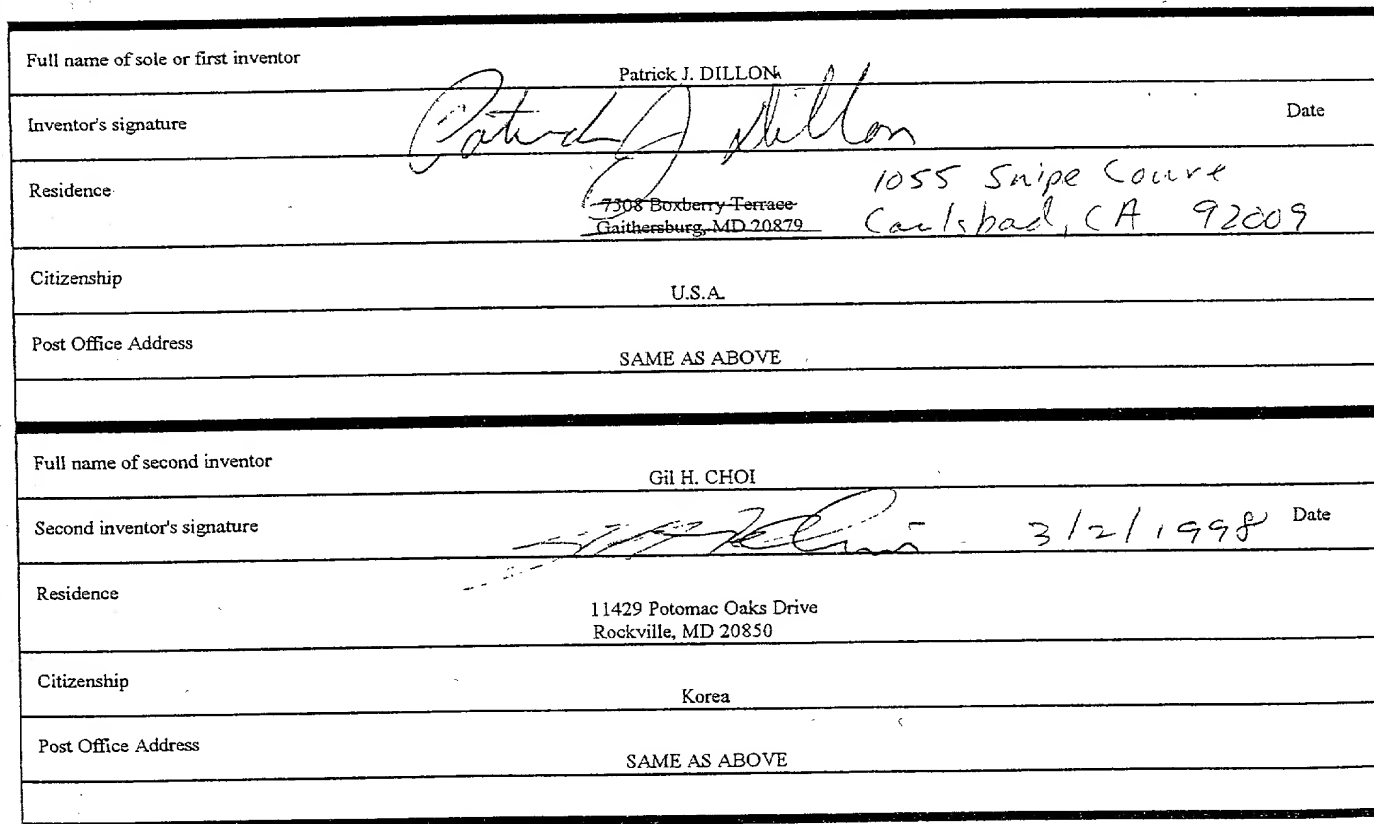 Full name of sole or first inventor
Patrick J. DILLON
Inventor's signature Patrick J Dillon Date
Residence
7308 Boxberry Terrace
Gaithersburg, MD 20879
1055 Snipe Court
Carlsbad, CA 92009
Citizenship
U.S.A.
Post Office Address
SAME AS ABOVE
Full name of second inventor
Gil H. CHOI
Second inventor's signature 3/2/1998 Date
Residence
11429 Potomac Oaks Drive
Rockville, MD 20850
Citizenship
Korea
Post Office Address
SAME AS ABOVE